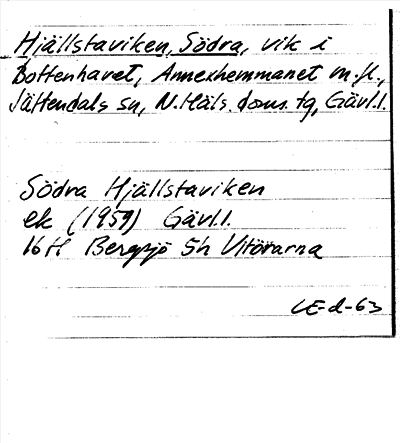 Hjällstaviken, Södra, vik i
Bottenhavet, Annexhemmanet m.fl.,
Jättendals sn, N. Häls. doms. tg, Gävl.l.
Södra Hjällstaviken
ek (1959) Gävl.l.
16H Bergsjö 5h Vitörarna
LE-d-63